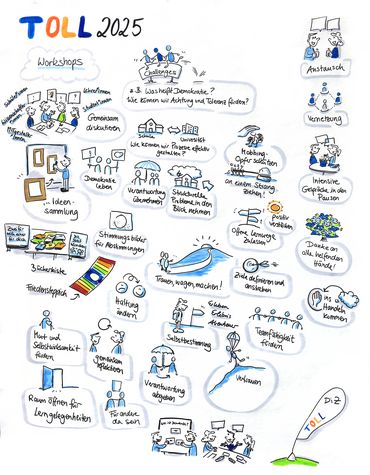 TOLL 2025
Workshops
Schüler*innen
Lehrer*innen
Student*innen
Gemeinsam
diskutieren
Challenges
z.B. Was heißt Demokratie?
Wie können wir Achtung und Toleranz fördern?
Schule
Universität
Wie können wir Prozesse effektiv
gestalten?
Austausch
Vernetzung
Intensive
Gespräche in den
Pausen
Danke an
alle helfenden
Hände!
ins
Handeln
kommen
... Ideen-
sammlung
Demokratie
leben
Verantwortung
übernehmen!
Strukturelle
Probleme in den
Blick nehmen
an einem Strang
ziehen!
positiv
verstärken
offene Lernwege
zulassen
Stimmungsbilder
für Abstimmungen
Bücherkiste
Friedensteppich
Haltung
ändern
Trauen, wagen, machen!
Ziele definieren und
anstreben
Erleben
Erlebnis
Abenteuer
Selbstbestimmung
Teamfähigkeit
fördern
Mut und
Selbstwirksamkeit
fördern
gemeinsam
reflektieren
Verantwortung
abgeben
Vertrauen
Raum öffnen für
Lerngelegenheiten
Füreinander
da sein
TOLL
DiZ